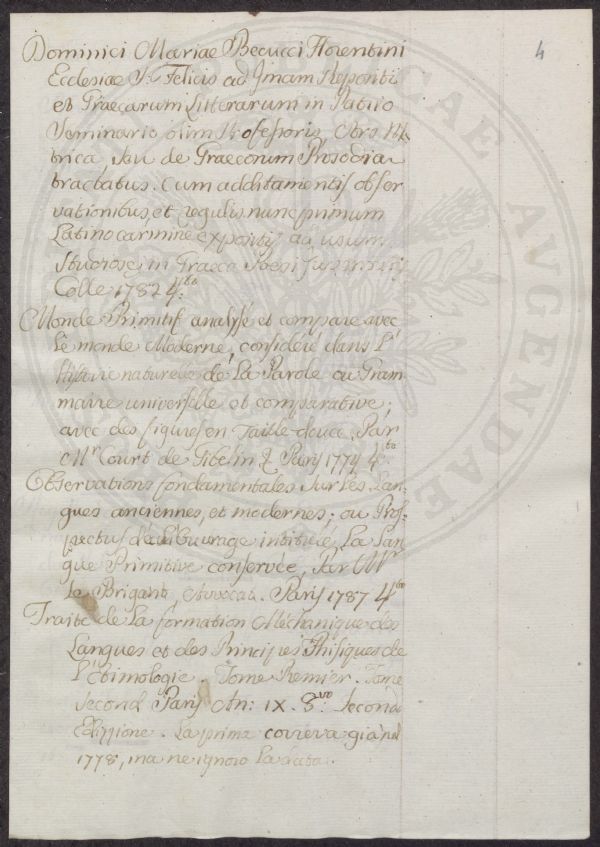 4
Dominici Mariae Becucci Florentini
Ecclesiae S: Felicis ad Imam Repositi
et Graecarum Litterarum in Patrio
Seminario olim Professoris, Ars Me
trica, seu de Graecorum Prosodia
tractatus. Cum additamentis obser
vationibus, et regulis nunc primum
Latino carmine expositis ad usum
Studiosae in Graeca Poesi
Colle 1782 4.to
Monde Primitif analysé et comparé avec
Le monde Moderne, consideré dans l'
histoire naturelle de La Parole ou Gram
maire universelle et comparative;
avec des figures en Taille douce. Par
Mr Court de Gibelin & Paris 1774 4.to
Observations fondamentales sur Les Lan
gues anciennes, et modernes; ou Pros
pectus de l'Ouvrage intitulé, La Lan
gue Primitive conservée, Par Mr
le Brigant, Avocat. Paris 1787 4.to
Traité de La formation Méchanique des
Langues et des Principes Phisiques de
L'Etimologie. Tome Premier. Tome
second Paris An: IX. 8.vo Seconda
Edizzione. La prima correva già nel
1778, ma ne ignoro La data.
PUBLICAE
AUGENDAE